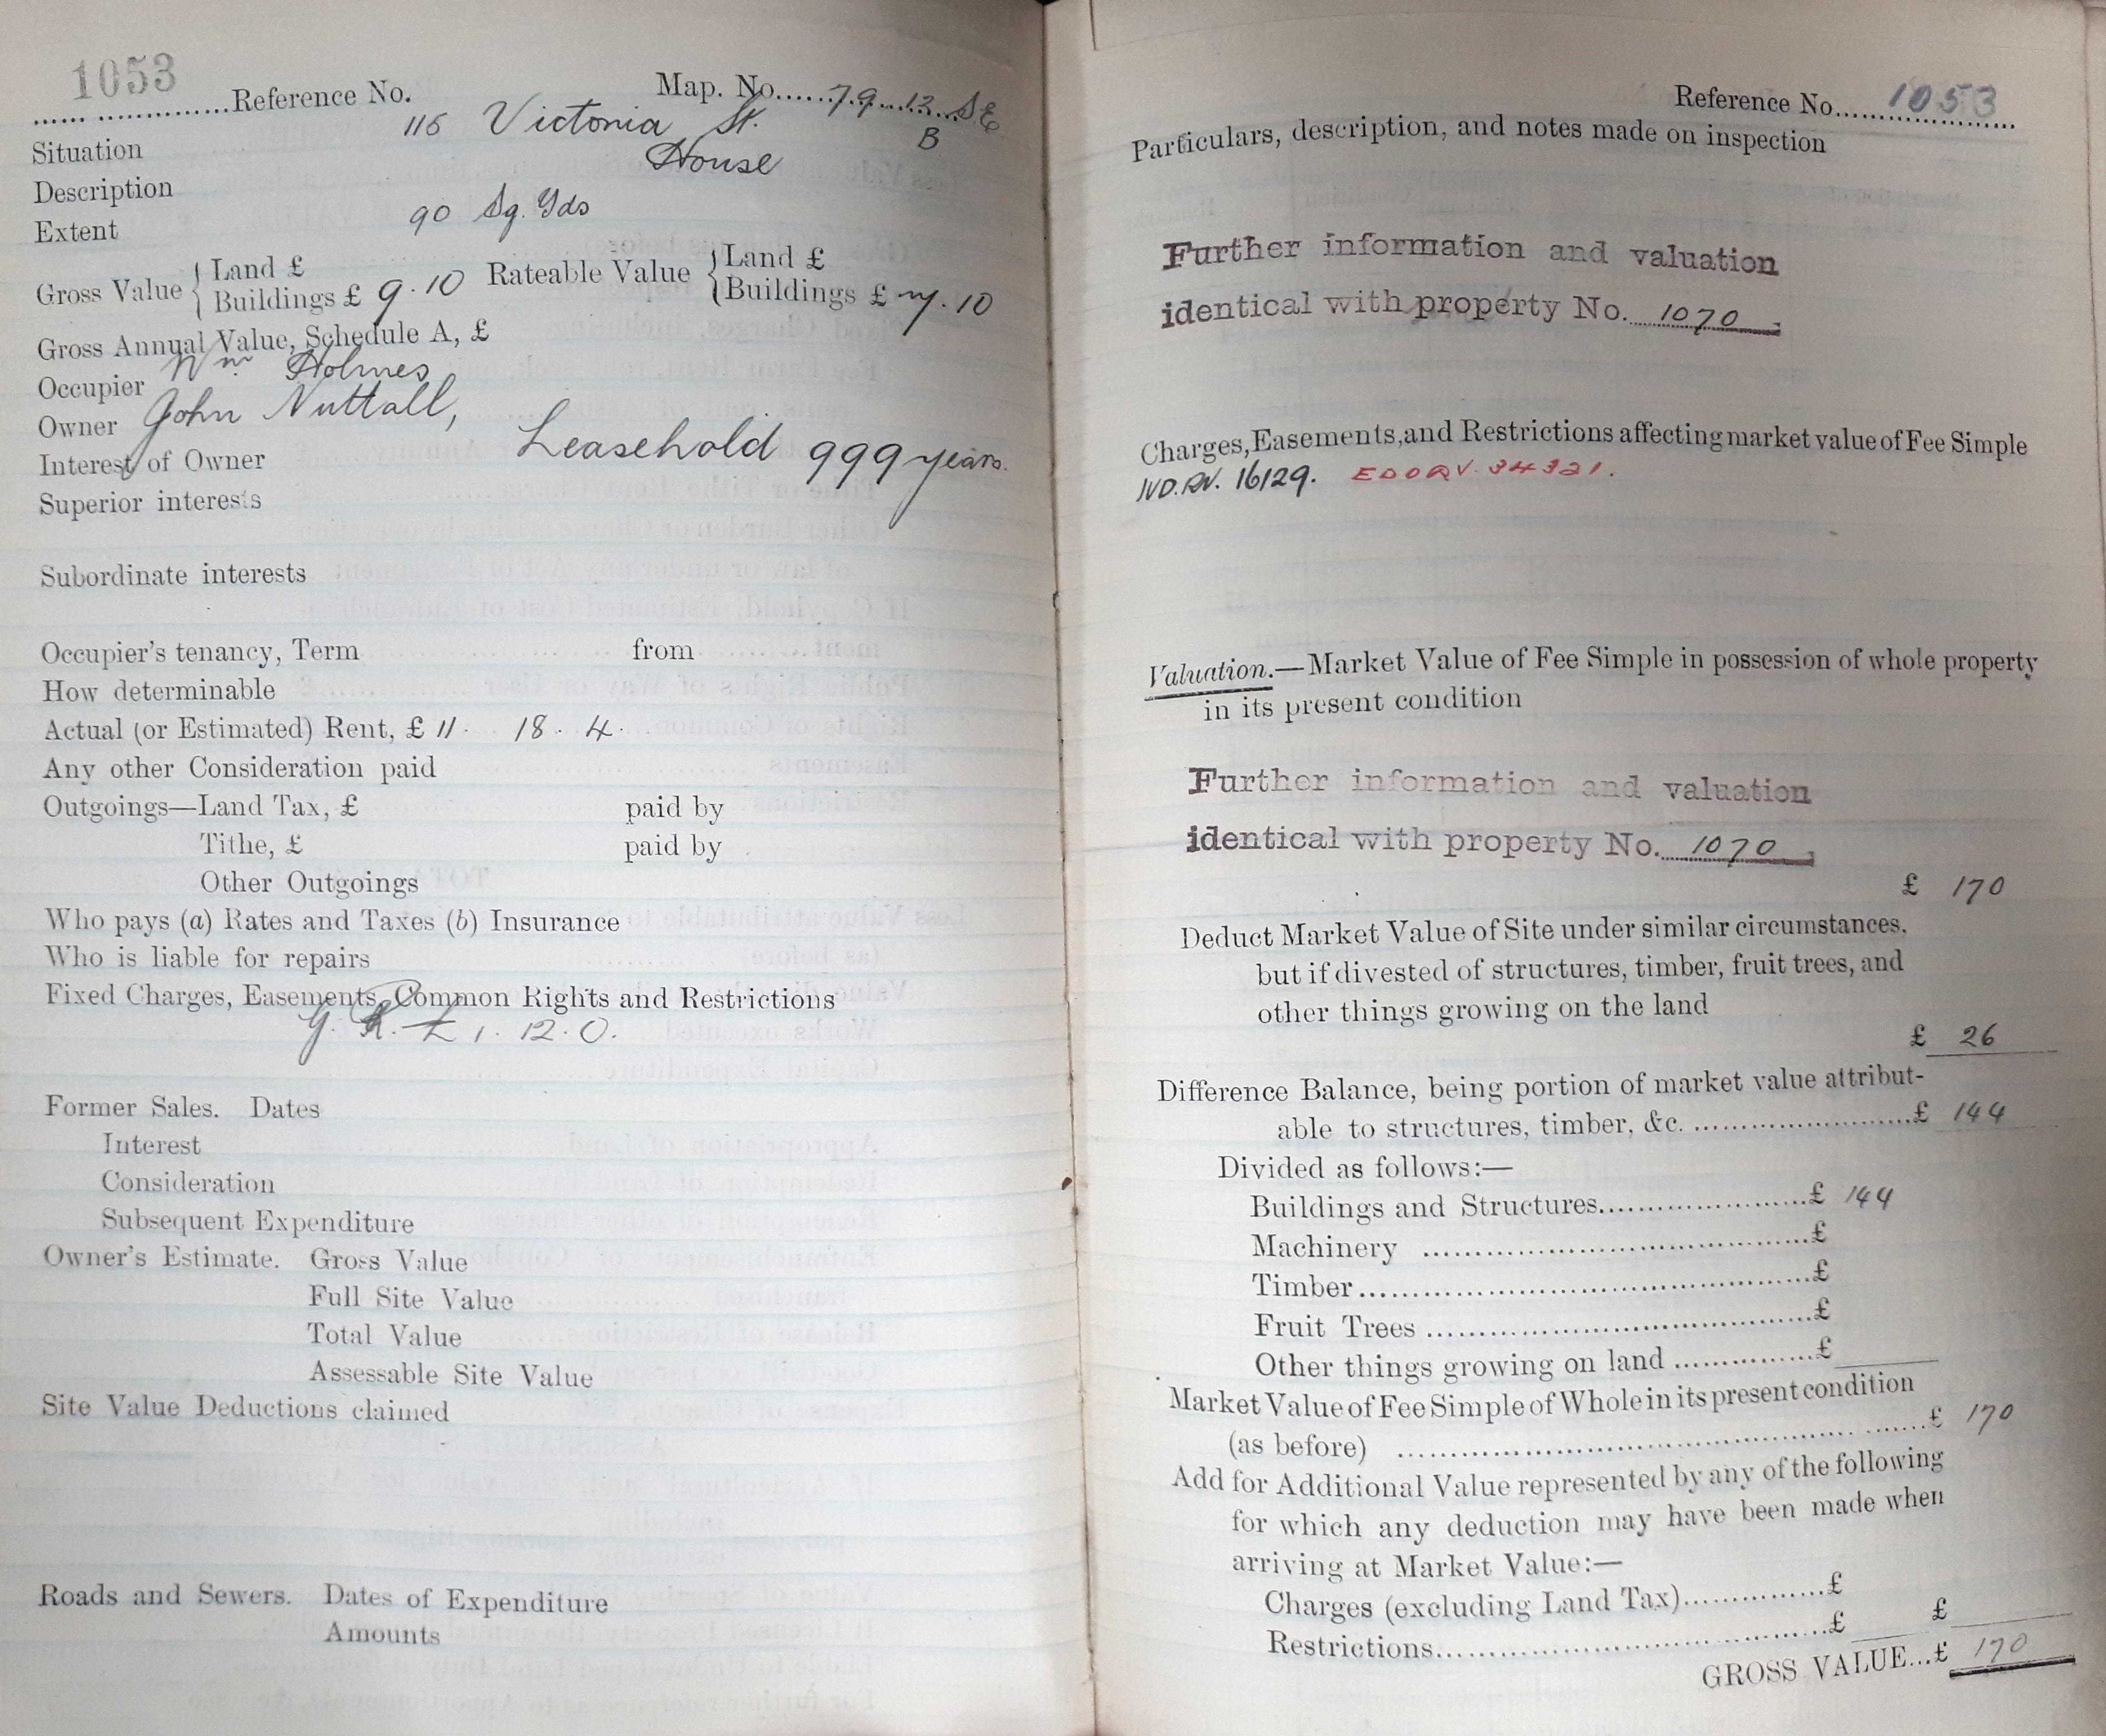 1053
Reference No.
Map. No. 79. 12. S.E.
B
Situation 115 Victoria St.
Description House
Extent 90 Sq. Yds
Gross Value { Land £
Buildings £ 9.10
Rateable Value { Land £
Buildings £ 7.10
Gross Annual Value, Schedule A, £
Occupier Wm Holmes
Owner John Nuttall,
Interest of Owner Leasehold 999 years.
Superior interests
Subordinate interests
Occupier's tenancy, Term from
How determinable
Actual (or Estimated) Rent, £ 11. 18. 4.
Any other Consideration paid
Outgoings—Land Tax, £ paid by
Tithe, £ paid by
Other Outgoings
Who pays (a) Rates and Taxes (b) Insurance
Who is liable for repairs
Fixed Charges, Easements, Common Rights and Restrictions
G. R. £1. 12. 0.
Former Sales. Dates
Interest
Consideration
Subsequent Expenditure
Owner's Estimate. Gross Value
Full Site Value
Total Value
Assessable Site Value
Site Value Deductions claimed
Roads and Sewers. Dates of Expenditure
Amounts
Reference No. 1053
Particulars, description, and notes made on inspection
Further information and valuation
identical with property No. 1070.
Charges, Easements, and Restrictions affecting market value of Fee Simple
IVD. RV. 16129. EDORV. 34321.
Valuation.—Market Value of Fee Simple in possession of whole property
in its present condition
Further information and valuation
identical with property No. 1070.
£ 170
Deduct Market Value of Site under similar circumstances,
but if divested of structures, timber, fruit trees, and
other things growing on the land
£ 26
Difference Balance, being portion of market value attribut-
able to structures, timber, &c. £ 144
Divided as follows:—
Buildings and Structures £ 144
Machinery £
Timber £
Fruit Trees £
Other things growing on land £
Market Value of Fee Simple of Whole in its present condition
(as before) £ 170
Add for Additional Value represented by any of the following
for which any deduction may have been made when
arriving at Market Value:—
Charges (excluding Land Tax) £
Restrictions £ £
GROSS VALUE...£ 170